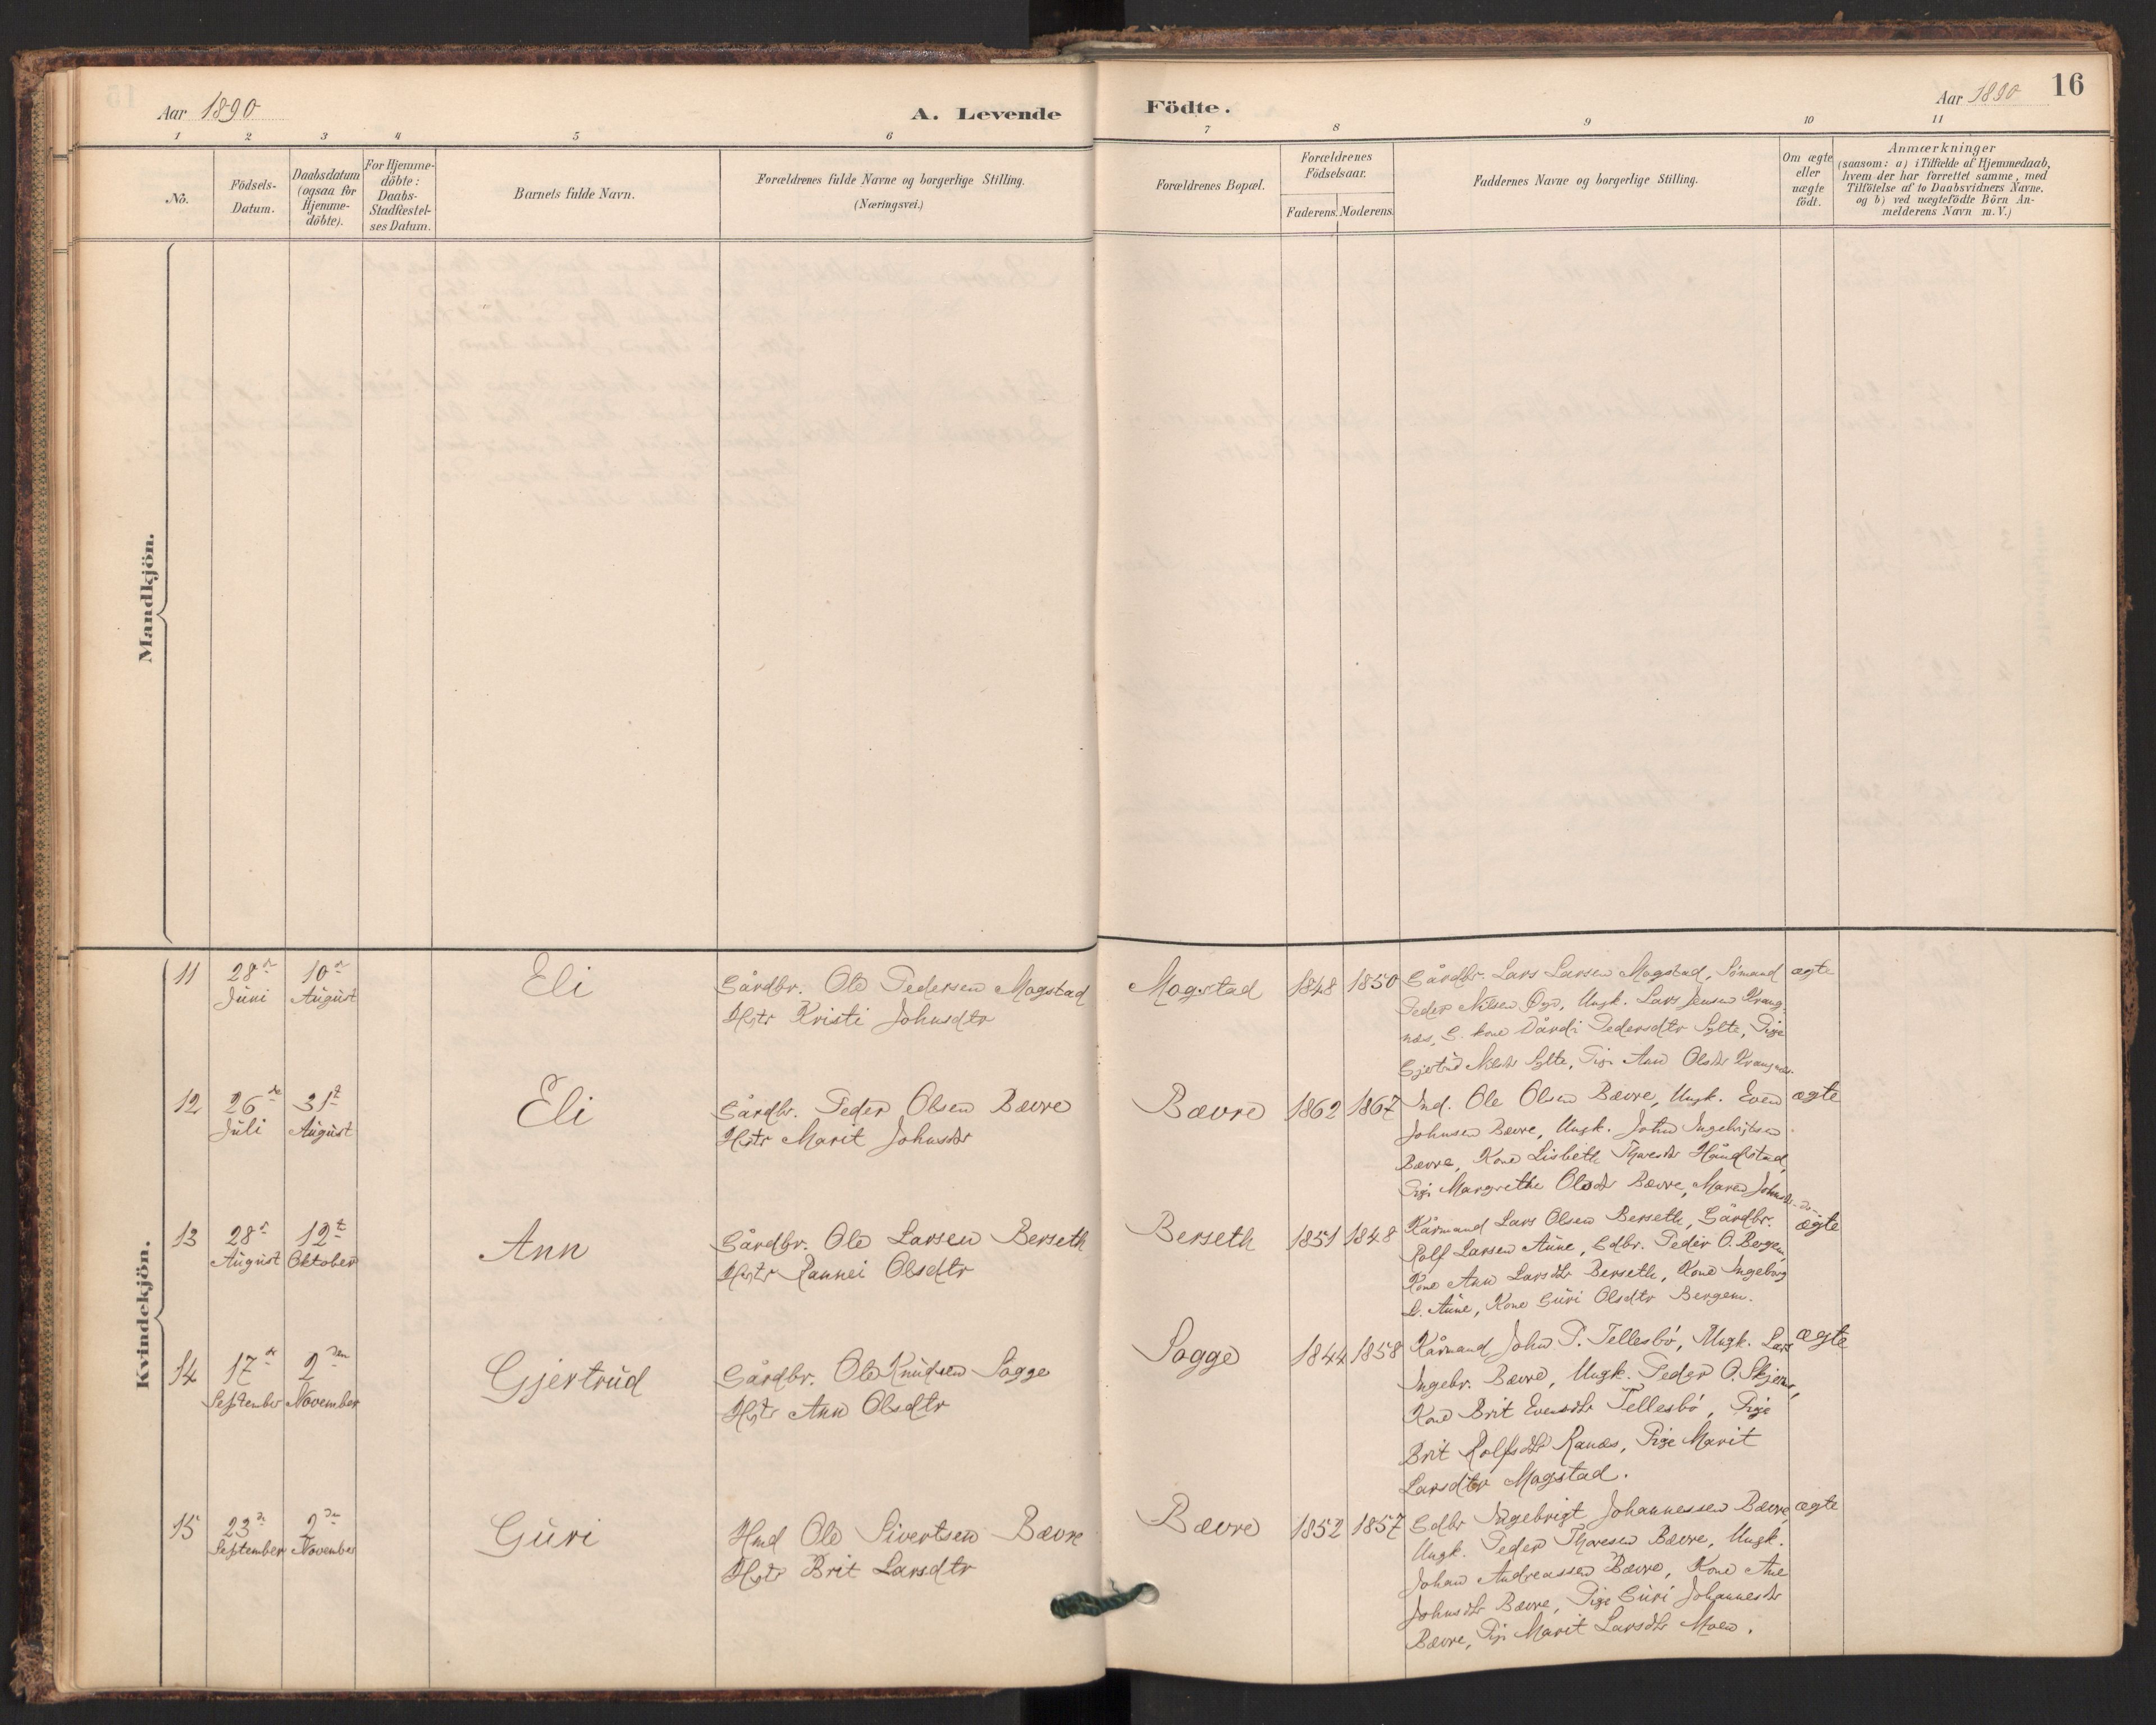 Aar 1890
A. Levende
Födte.
Aar 1890
16
1 2 3 4 5 6 7 8 9 10 11
No.
Födsels-
Datum.
Daabsdatum
(ogsaa for
Hjemme-
döbte).
For Hjemme-
döbte:
Daabs-
Stadfæstel-
ses Datum.
Barnets fulde Navn.
Forældrenes fulde Navne og borgerlige Stilling.
(Næringsvei.)
Forældrenes Bopæl.
Forældrenes
Födselsaar.
Faderens. Moderens.
Faddernes Navne og borgerlige Stilling.
Om ægte
eller
uægte
födt.
Anmærkninger
(saasom: a) i Tilfælde af Hjemmedaab,
hvem der har forrettet samme, med
Tilföielse af to Daabsvidners Navne.
og b) ved uægtefödte Börn An-
melderens Navn m. V.)
Mandkjön.
Kvindekjön.
11
28de
Juni
10de
August
Eli
Gårdbr. Ole Pedersen Magstad
Hstr Kristi Johnsdtr
Magstad
1848
1850
Gårdbr. Lars Larsen Magstad, Sömand
Peder Nilsen Øye, Ungk. Lars Jensen Krang-
næs, G. kone Dårdi Pedersdtr Sylte, Pige
Gjertrud Nilsdtr Sylte, Pige Ann Olsdtr Krangnæs.
ægte
12
26de
Juli
31te
August
Eli
Gårdbr. Peder Olsen Bævre
Hstr Marit Johnsdtr
Bævre
1862
1867
Ind. Ole Olsen Bævre, Ungk. Even
Johnsen Bævre, Ungk. John Ingebrigtsen
Bævre, Kone Lisbeth Thoresdtr Håndstad,
Pige Margrethe Olsdtr Bævre, Maren Johnsdtr -do-
ægte
13
28de
August
12te
Oktober
Ann
Gårdbr. Ole Larsen Berseth
Hstr Rannei Olsdtr
Berseth
1851
1848
Kårmand Lars Olsen Berseth, Gårdbr.
Rolf Larsen Aune, Gdbr. Peder O. Bergem,
Kone Ann Larsdtr Berseth, Kone Ingeborg
L. Aune, Kone Guri Olsdtr Bergem.
ægte
14
17de
September
2den
November
Gjertrud
Gårdbr. Ole Knudsen Sogge
Hstr Ann Olsdtr
Sogge
1844
1858
Kårmand John P. Tellesbö, Ungk. Lars
Ingebr. Bævre, Ungk. Peder O.
Kone Brit Evensdtr Tellesbö, Pige
Brit Rolfsdtr Ranæs, Pige Marit
Larsdtr Magstad.
ægte
15
23de
September
2den
November
Guri
Hmd Ole Sivertsen Bævre
Hstr Brit Larsdtr
Bævre
1852
1857
Gdbr Ingebrigt Johannessen Bævre,
Ungk. Peder Thoresen Bævre, Ungk.
Johan Andreassen Bævre, Kone Ane
Johnsdtr Bævre, Pige Guri Johannesdtr
Bævre, Pige Marit Larsdtr Moen.
ægte